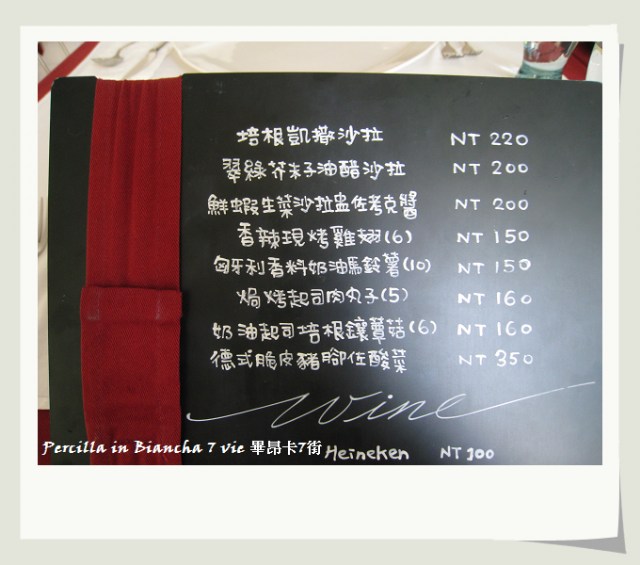 培根凱撒沙拉 NT 220
翠綠芥末子油醋沙拉 NT 200
鮮蝦生菜沙拉盅佐考克醬 NT 200
香辣現烤雞翅(6) NT 150
匈牙利香料奶油馬鈴薯(10) NT 150
焗烤起司肉丸子(5) NT 160
奶油起司培根鑲蘑菇(6) NT 160
德式脆皮豬腳佐酸菜 NT 350
Wine
Heineken NT 100
Percilla in Biancha 7 vie 畢昂卡7街